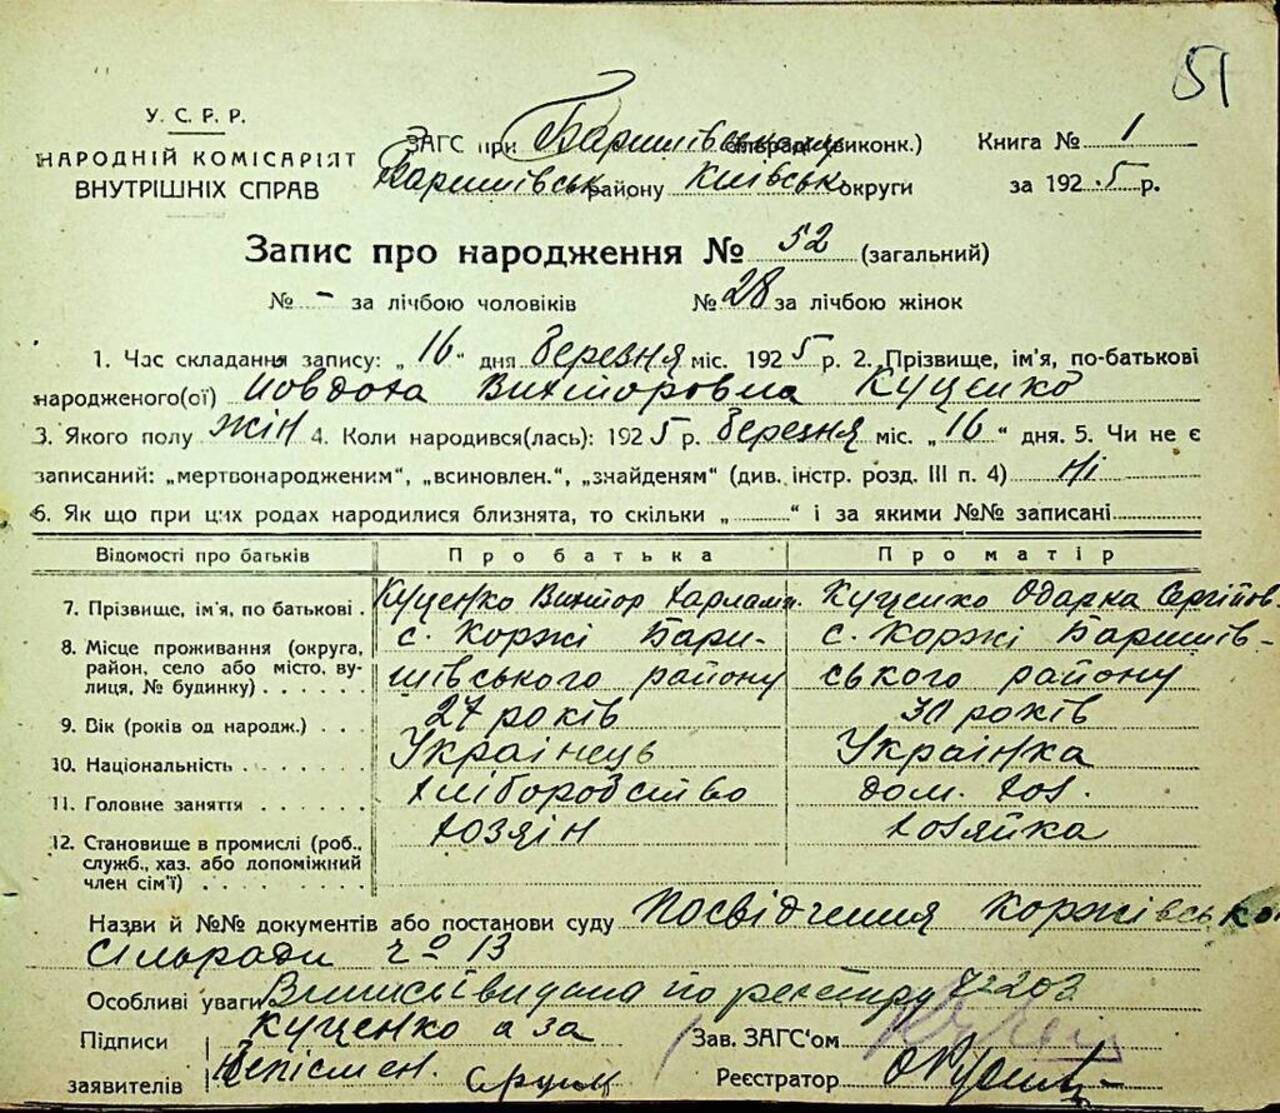 51
У. С. Р. Р.
НАРОДНІЙ КОМІСАРІЯТ
ВНУТРІШНІХ СПРАВ
ЗАГС при Баришівському (виконк.)
Баришівськ району Київськ округи
Книга № 1
за 1925 р.
Запис про народження № 52 (загальний)
№ - за лічбою чоловіків № 28 за лічбою жінок
1. Час складання запису: „16" дня березня міс. 1925 р. 2. Прізвище, ім'я, по-батькові
народженого(ої) Йовдоха Викторовна Куценко
3. Якого полу жін 4. Коли народився(лась): 1925 р. березня міс. „16" дня. 5. Чи не є
записаний: „мертвонародженим", „всиновлен.", „знайденям" (див. інстр. розд. III п. 4) ні
6. Як що при цих родах народилися близнята, то скільки „ " і за якими №№ записані
Відомості про батьків Про батька Про матір
7. Прізвище, ім'я, по батькові . Куценко Виктор Харламп. Куценко Одарка Сергіїов.
8. Місце проживання (округа, район, село або місто, вулиця, № будинку) . . . . . . с. Коржі Баришівського району с. Коржі Баришівського району
9. Вік (років од народж.) . . . 27 років 30 років
10. Національність . . . . . . . Українець Українка
11. Головне заняття . . . . . . хліборобство дом. хоз.
12. Становище в промислі (роб., служб., хаз. або допоміжний член сім'ї) . . . . . . . . хозяін хозяйка
Назви й №№ документів або постанови суду Посвідчення Коржівсько
сільради ч° 13
Особливі уваги Виписі видана по реєстру № 203
Підписи Куценко а за
заявителів Неписмен.
Зав. ЗАГС'ом
Реєстратор